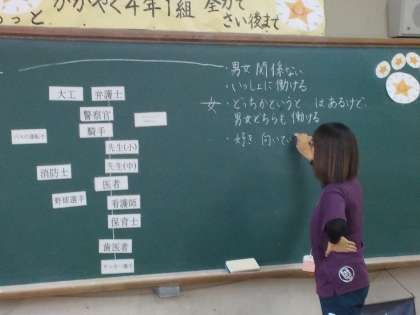 かがやく4年1組 全力で
もっと
さい後まで
・男女関係ない
・いっしょに働ける
女
・どっちかというと はあるけど、
男女どちらも働ける
・好き 向いてい
大工
弁護士
警察官
騎手
先生(小)
消防士
先生(中)
医者
野球選手
看護師
保育士
歯医者
サッカー選手